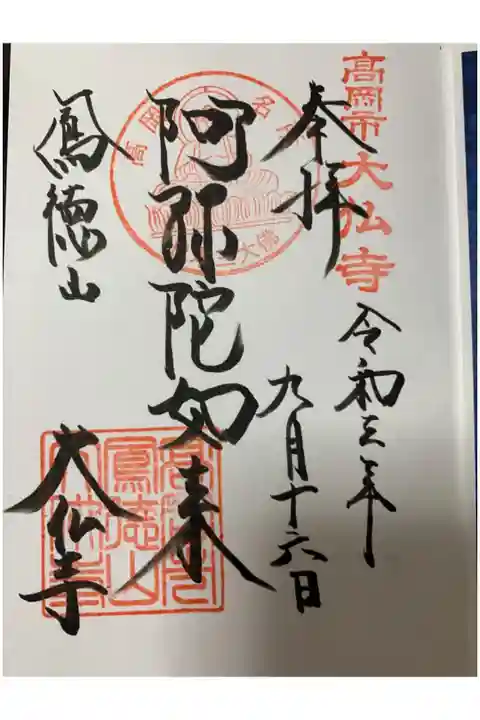 高岡市大仏寺
奉拝
令和三年
九月十六日
高岡
名所
大佛
阿弥陀如来
鳳徳山
鳳徳山
大仏寺